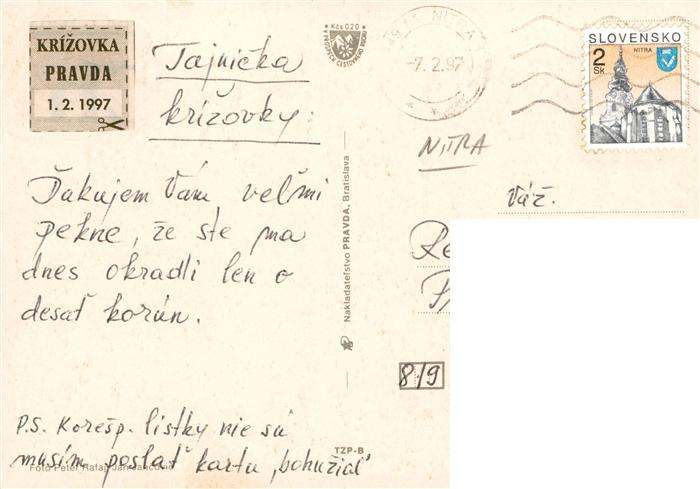 KRÍŽOVKA
PRAVDA
1. 2. 1997
Tajnička
krížovky:
Ďakujem Vám veľmi
pekne, že ste ma
dnes okradli len o
desať korún.
P.S. Korešp. lístky nie sú
musím poslať kartu „bohužiaľ"
Foto Peter Rafaj
TZP-B
Nakladateľstvo PRAVDA, Bratislava
Kčs 0,20
NITRA
-7. 2. 97
SLOVENSKO
2
Sk
NITRA
NITRA
Váž.
8/9